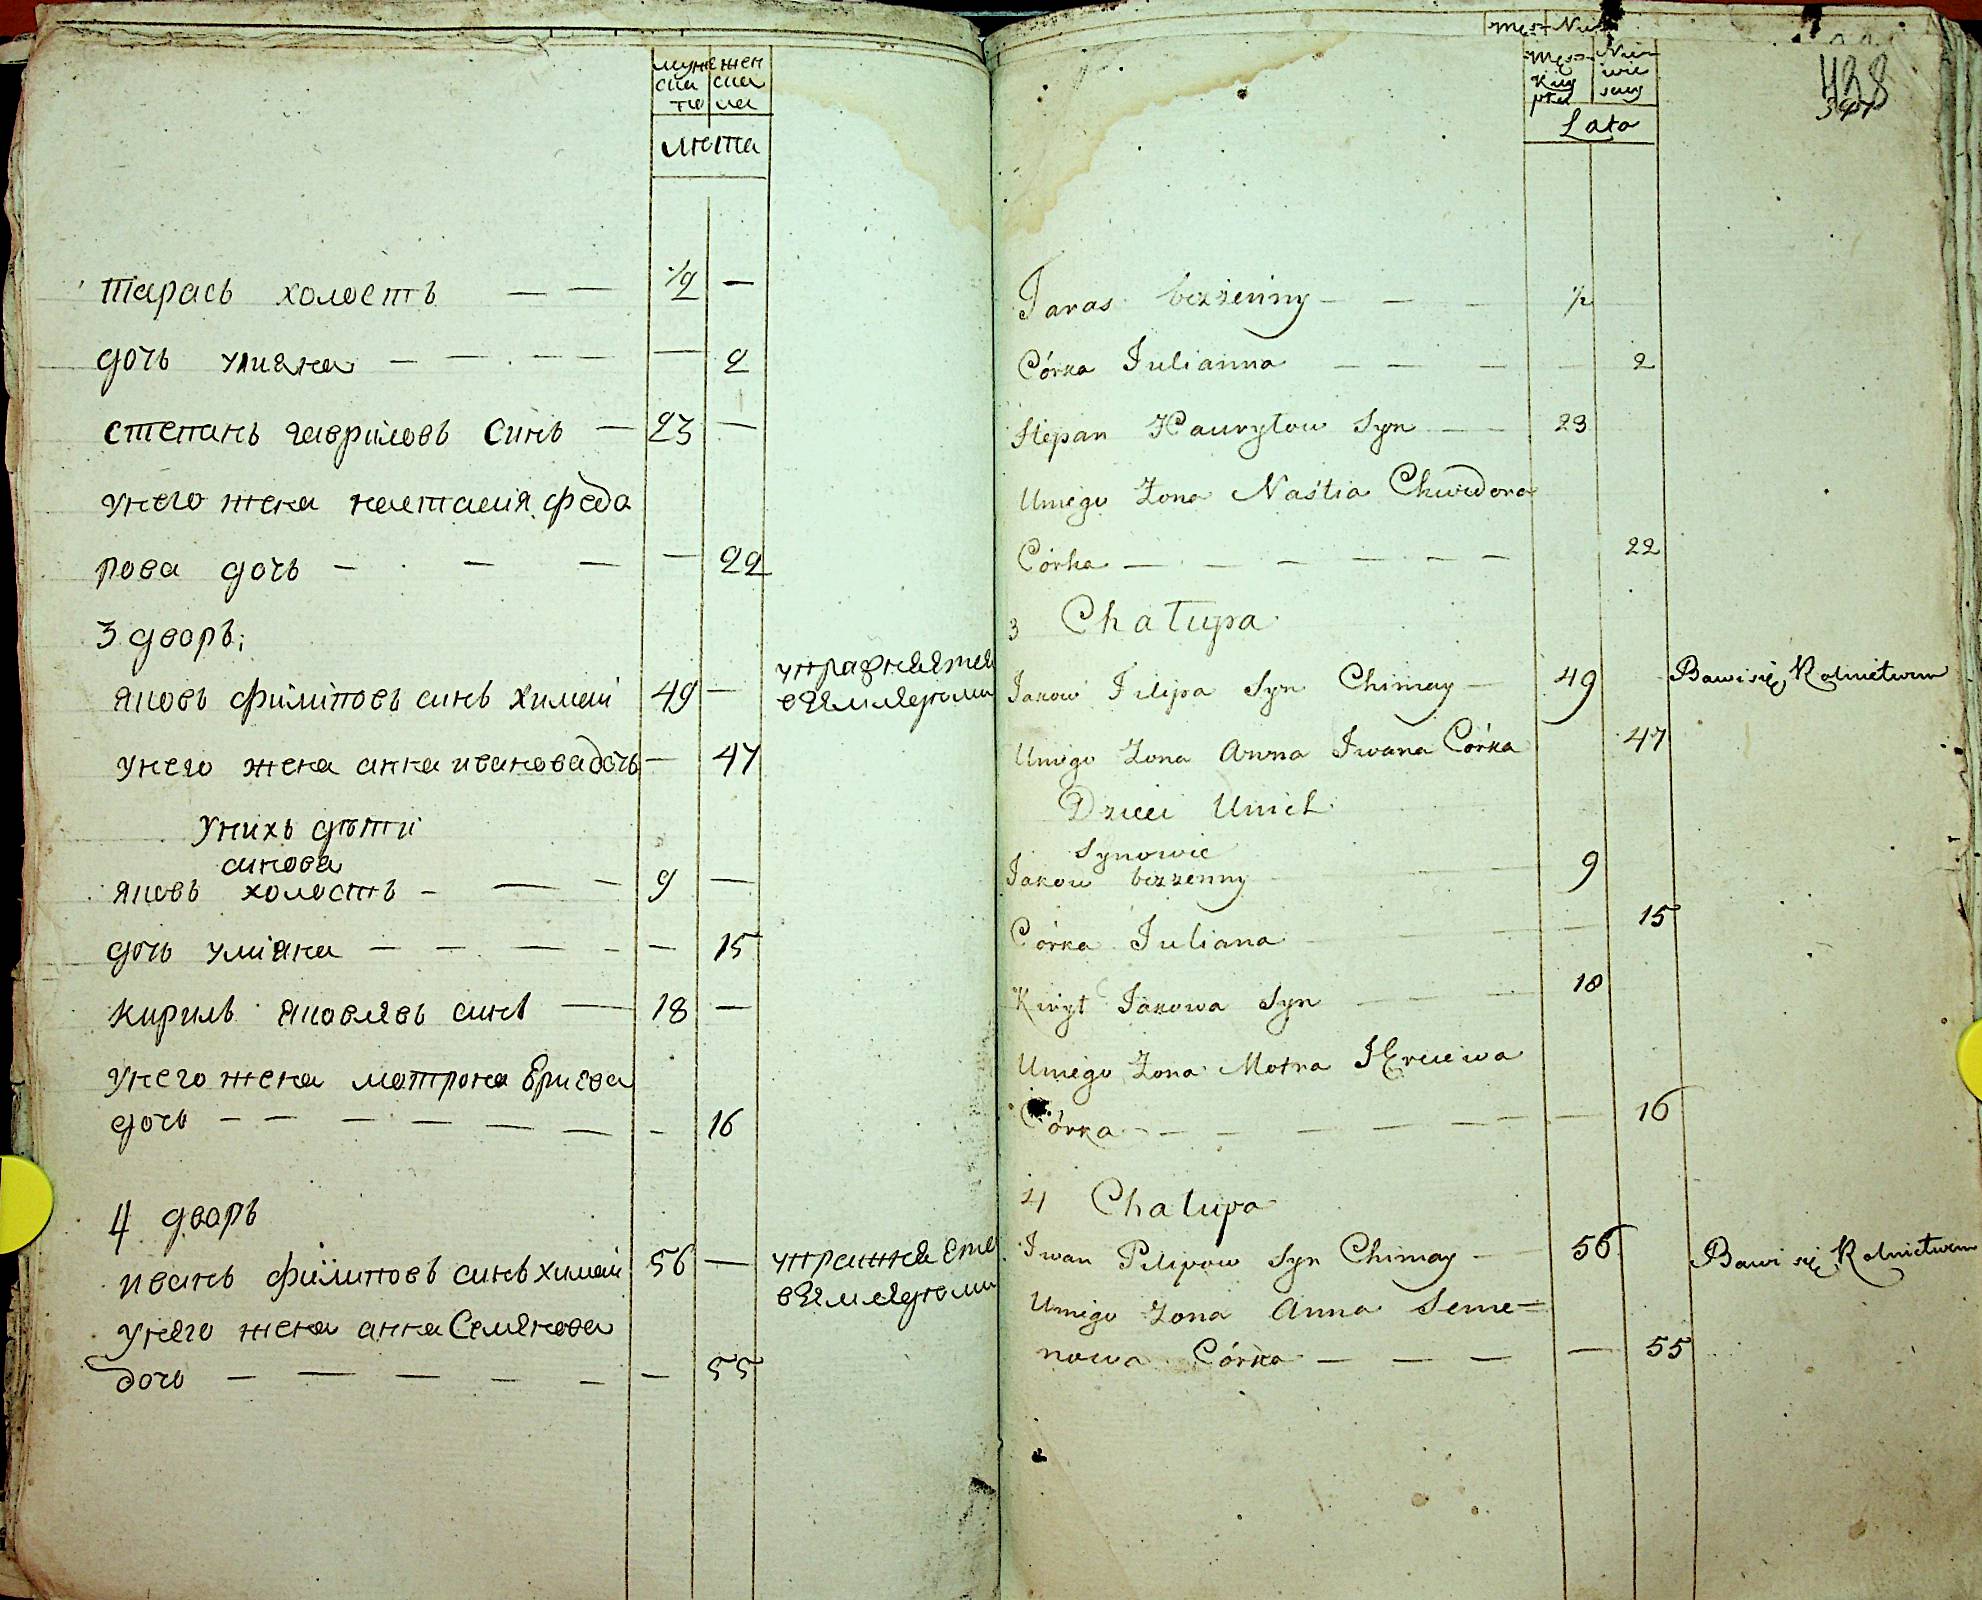 мужеска женска
лѣта
тарасъ холостъ — — 1/2 —
дочь улияна — — — — — 2
степанъ гавриловъ синъ — 23 —
унего жена наталия федо
рова дочь — — — — 22
3 дворъ;
яковъ филиповъ синъ химай 49 —
унего жена анна иванова дочь — 47
унихъ дѣти
синова
яковъ холостъ — — — 9 —
дочь улияна — — — — — 15
кирилъ яковлевъ синъ — 18 —
унего жена матрона
дочь — — — — — — — 16
4 дворъ
иванъ филиповъ синъ химай 56 —
унего жена анна Семенова
дочь — — — — — — 55
Lata
Taras bezżenny — — — 1/2
Córka Julianna — — — — 2
Stepan Hawryłow Syn — — 23
Uniego Żona Naśtia Chwedora
Córka — — — — — — 22
3 Chałupa
Jakow Filipa Syn Chimay — 49 Bawi się Rolnictwem
Uniego Żona Anna Iwana Córka 47
Dzieci Unich
Synowie
Jakow bezzenny 9
Córka Juliana 15
Kirył Jakowa Syn 18
Uniego Żona Motra
Córka — — — — — — 16
4 Chalupa
Iwan Pilipow Syn Chimay — 56 Bawi się Rolnictwem
Uniego Żona Anna Seme-
nowa Córka — — — — 55